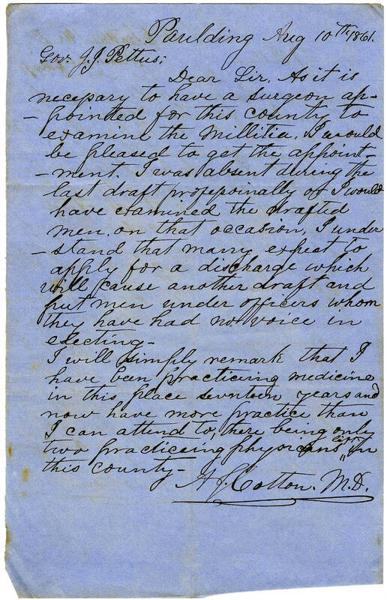 Paulding Aug 10th 1861.
Gov. J.J. Pettus;
Dear Sir. As it is
necessary to have a surgeon ap-
-pointed for this county to
examine the Millitia, I would
be pleased to get the appoint-
-ment. I was absent during the
last draft professionally or I would
have examined the drafted
men. on that occasion, I under
-stand that many expect to
apply for a discharge which
will cause another draft and
put men under officers whom
they have had no voice in
electing-
I will simply remark that I
have been practicing medicine
in this place seventeen years and
now have more practice than
I can attend to, there being only
two practiceing physicians in
this county-
Cotton. M.D.